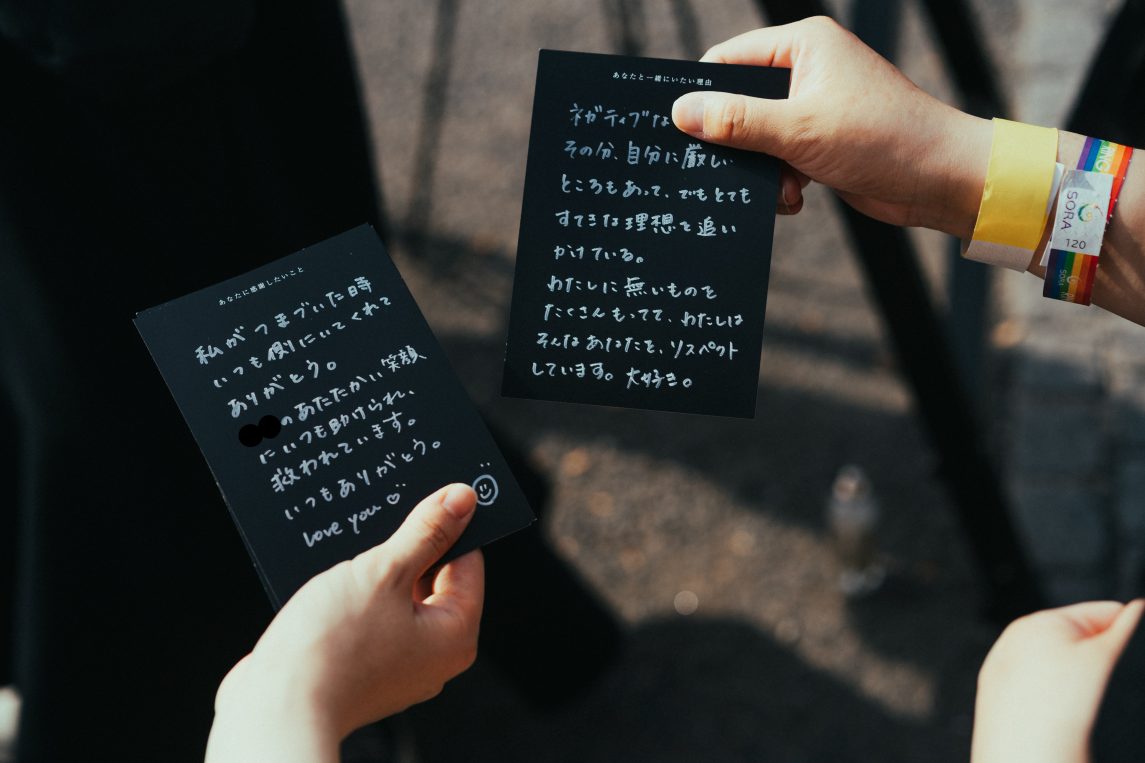 あなたに感謝したいこと
私がつまづいた時
いつも側にいてくれて
ありがとう。
のあたたかい笑顔
にいつも助けられ、
救われています。
いつもありがとう。
love you
あなたと一緒にいたい理由
ネガティブな
その分、自分に厳しい
ところもあって、でもとても
すてきな理想を追い
かけている。
わたしに無いものを
たくさんもってて、わたしは
そんなあなたを、リスペクト
しています。大好き。
SORA
120